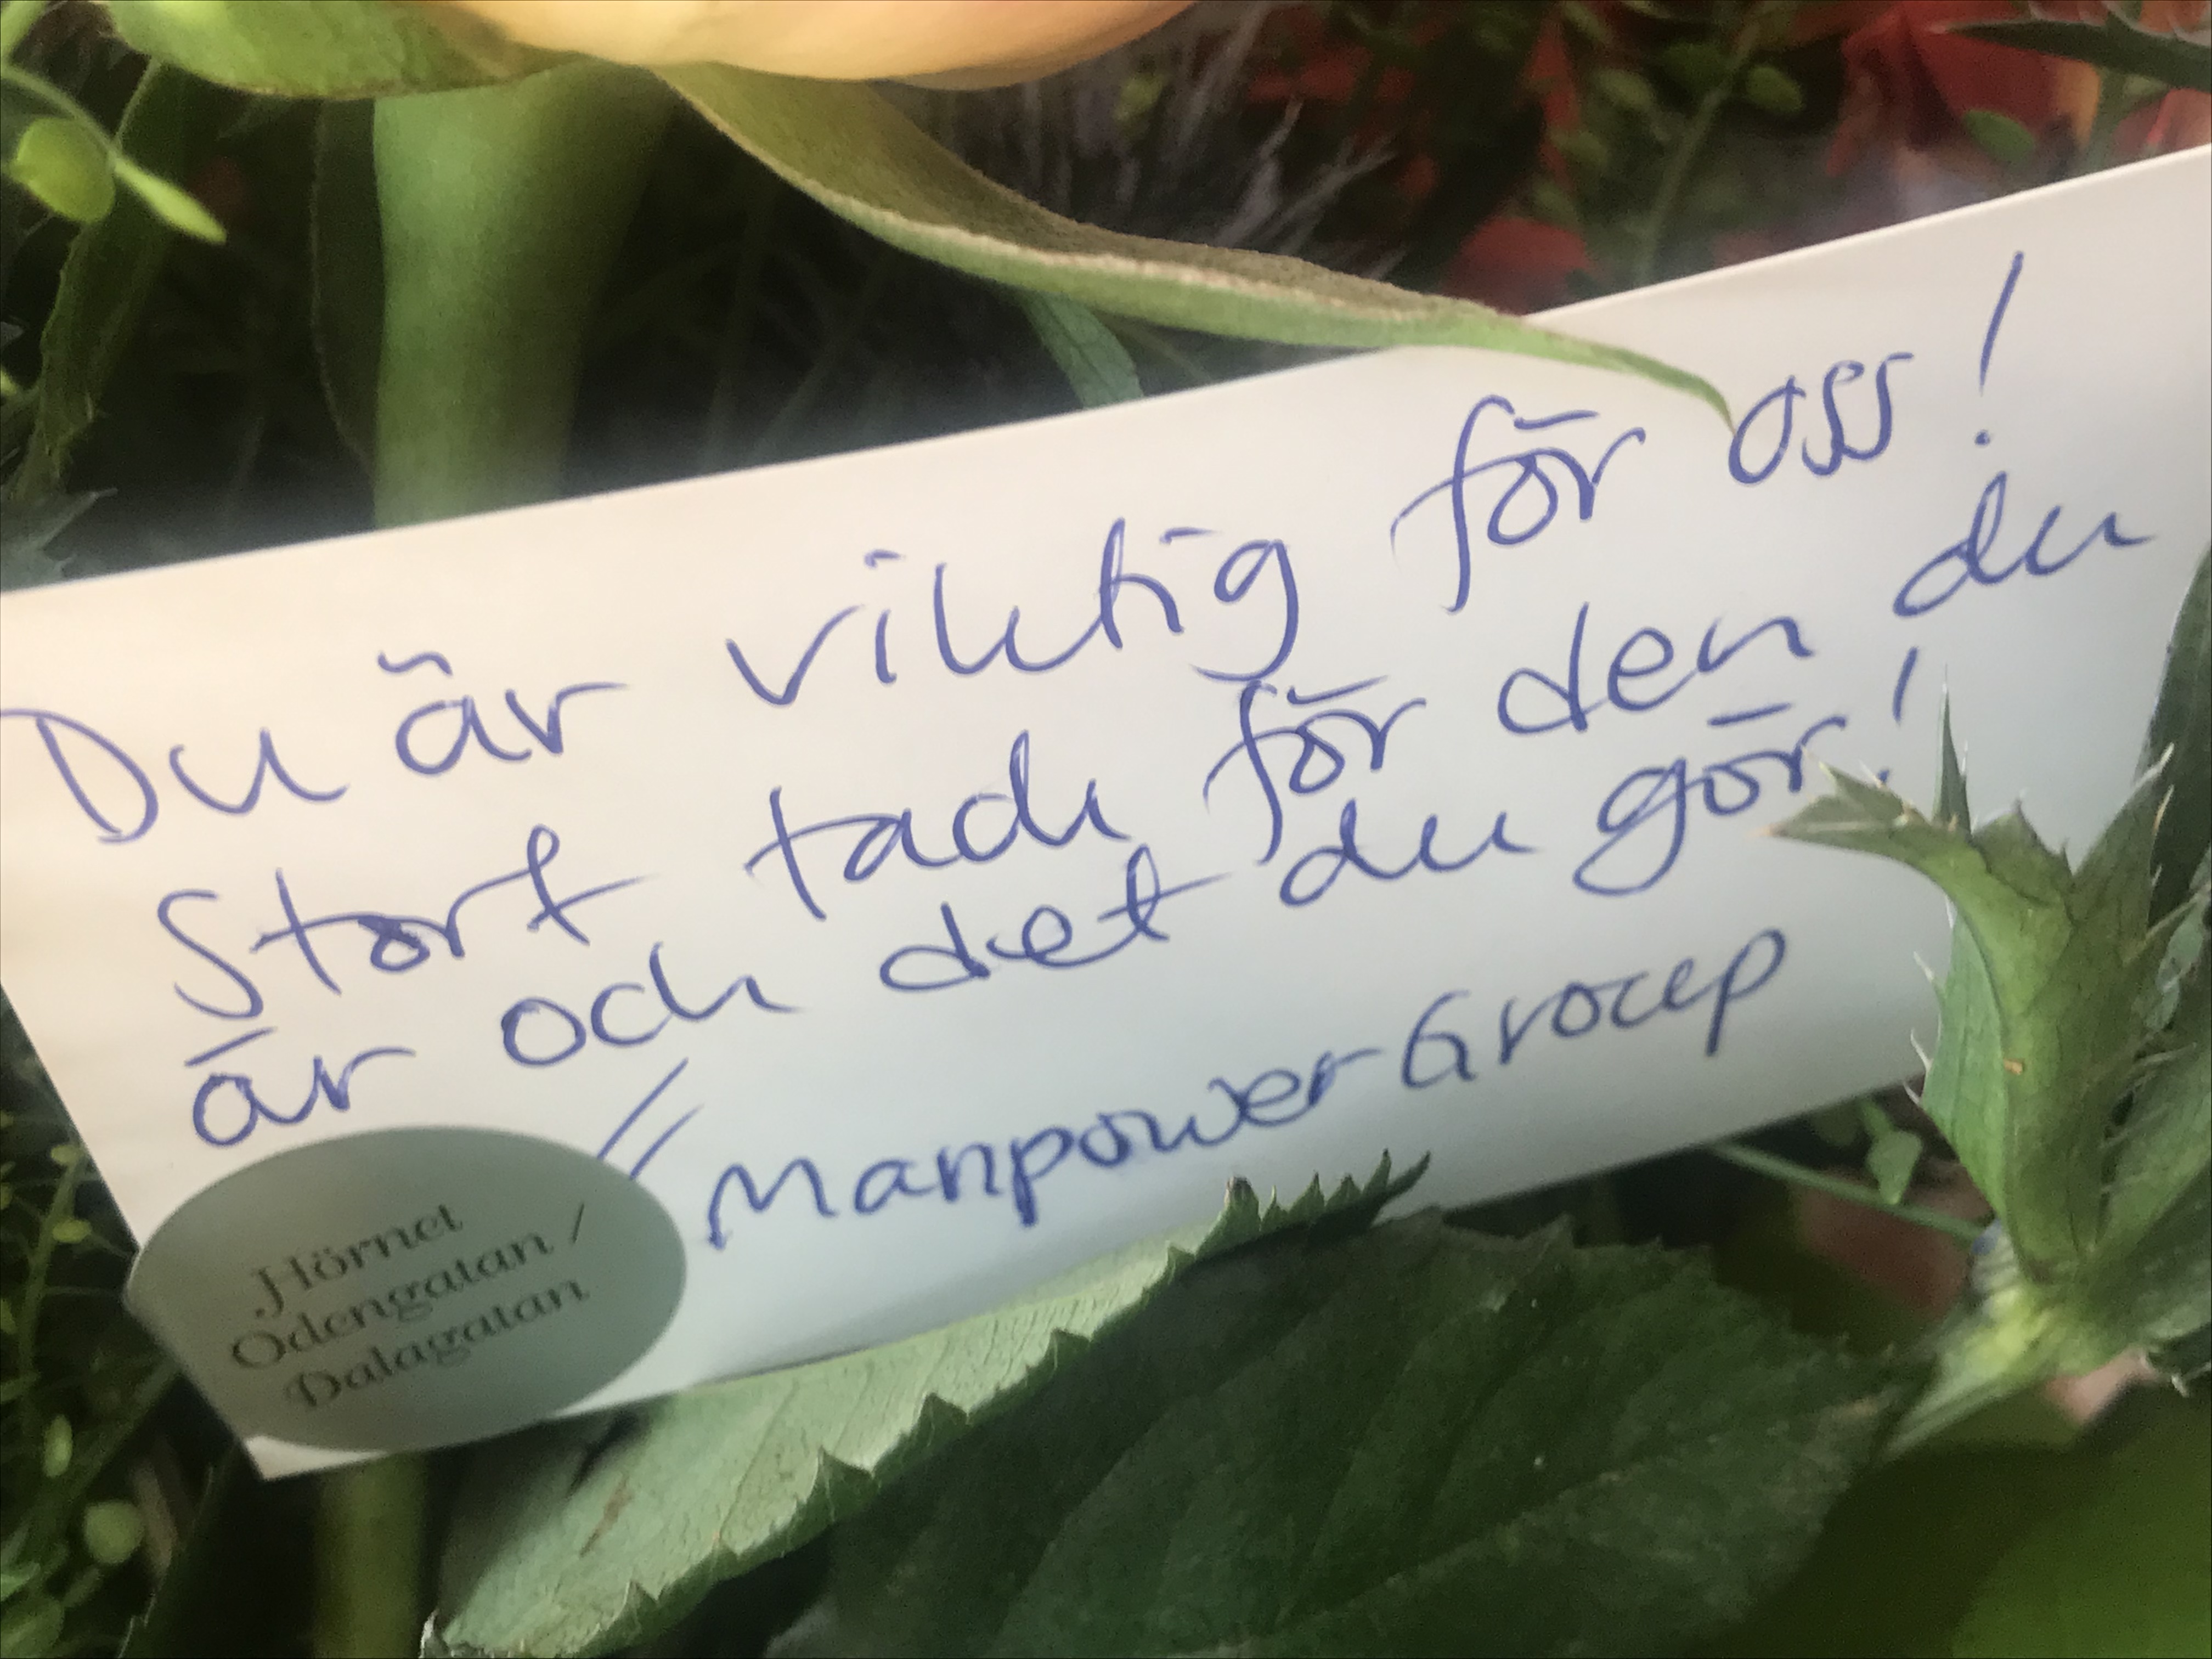 Du är viktig för oss!
Stort tack för den du
är och det du gör!
// ManpowerGroup
Hörnet
Odengatan /
Dalagatan